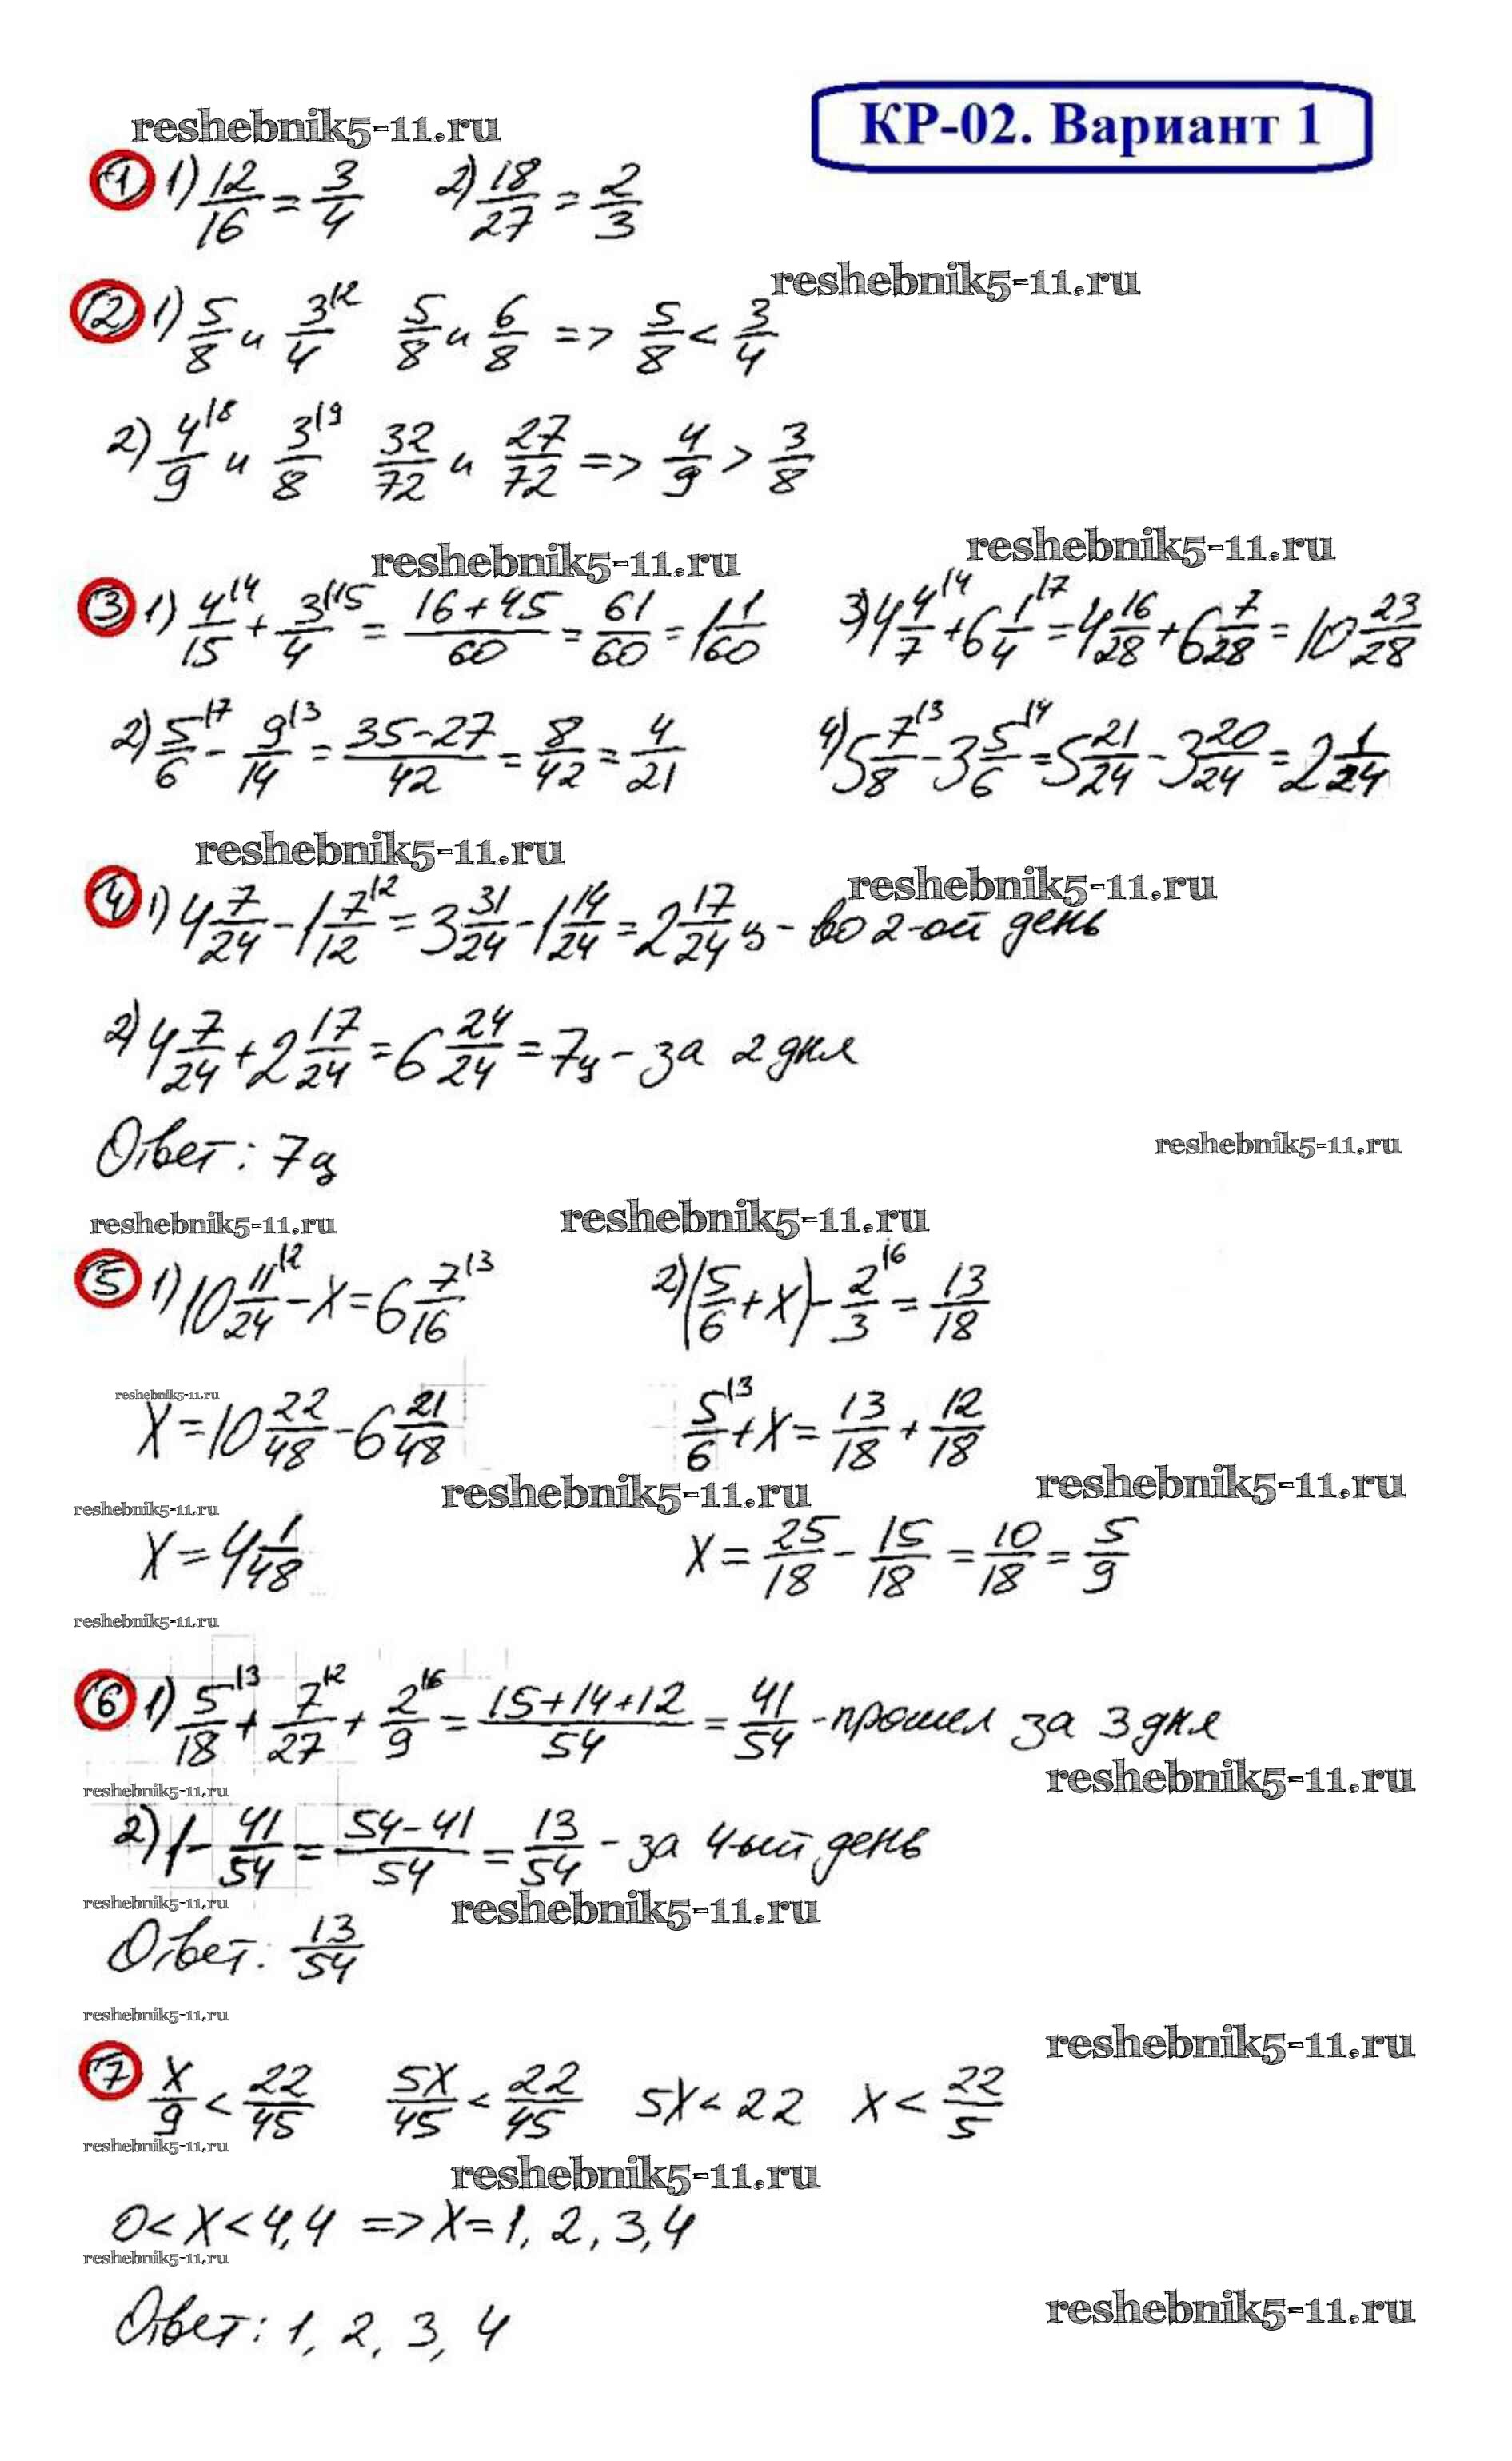 КР-02. Вариант 1
reshebnik5-11.ru
1 1) 12/16 = 3/4 2) 18/27 = 2/3
reshebnik5-11.ru
2 1) 5/8 и 3/4 |2 5/8 и 6/8 => 5/8 < 3/4
2) 4/9 |8 и 3/8 |9 32/72 и 27/72 => 4/9 > 3/8
reshebnik5-11.ru reshebnik5-11.ru
3 1) 4/15 |4 + 3/4 |15 = (16+45)/60 = 61/60 = 1 1/60 3) 4 4/7 |4 + 6 1/4 |7 = 4 16/28 + 6 7/28 = 10 23/28
2) 5/6 |7 - 9/14 |3 = (35-27)/42 = 8/42 = 4/21 4) 5 7/8 |3 - 3 5/6 |4 = 5 21/24 - 3 20/24 = 2 1/24
reshebnik5-11.ru reshebnik5-11.ru
4 1) 4 7/24 - 1 7/12 |2 = 3 31/24 - 1 14/24 = 2 17/24 ц - во 2-ой день
2) 4 7/24 + 2 17/24 = 6 24/24 = 7ц - за 2 дня
Ответ: 7ц
reshebnik5-11.ru
reshebnik5-11.ru reshebnik5-11.ru
5 1) 10 11/24 |2 - x = 6 7/16 |3 2) (5/6 + x) - 2/3 |6 = 13/18
reshebnik5-11.ru
x = 10 22/48 - 6 21/48 5/6 |3 + x = 13/18 + 12/18
reshebnik5-11.ru reshebnik5-11.ru reshebnik5-11.ru
x = 4 1/48 x = 25/18 - 15/18 = 10/18 = 5/9
reshebnik5-11.ru
6 1) 5/18 |3 + 7/27 |2 + 2/9 |6 = (15+14+12)/54 = 41/54 - прошел за 3 дня
reshebnik5-11.ru reshebnik5-11.ru
2) 1 - 41/54 = (54-41)/54 = 13/54 - за 4-ый день
reshebnik5-11.ru reshebnik5-11.ru
Ответ: 13/54
reshebnik5-11.ru
reshebnik5-11.ru
7 x/9 < 22/45 5x/45 < 22/45 5x < 22 x < 22/5
reshebnik5-11.ru
reshebnik5-11.ru
0 < x < 4,4 => x = 1, 2, 3, 4
reshebnik5-11.ru
Ответ: 1, 2, 3, 4
reshebnik5-11.ru